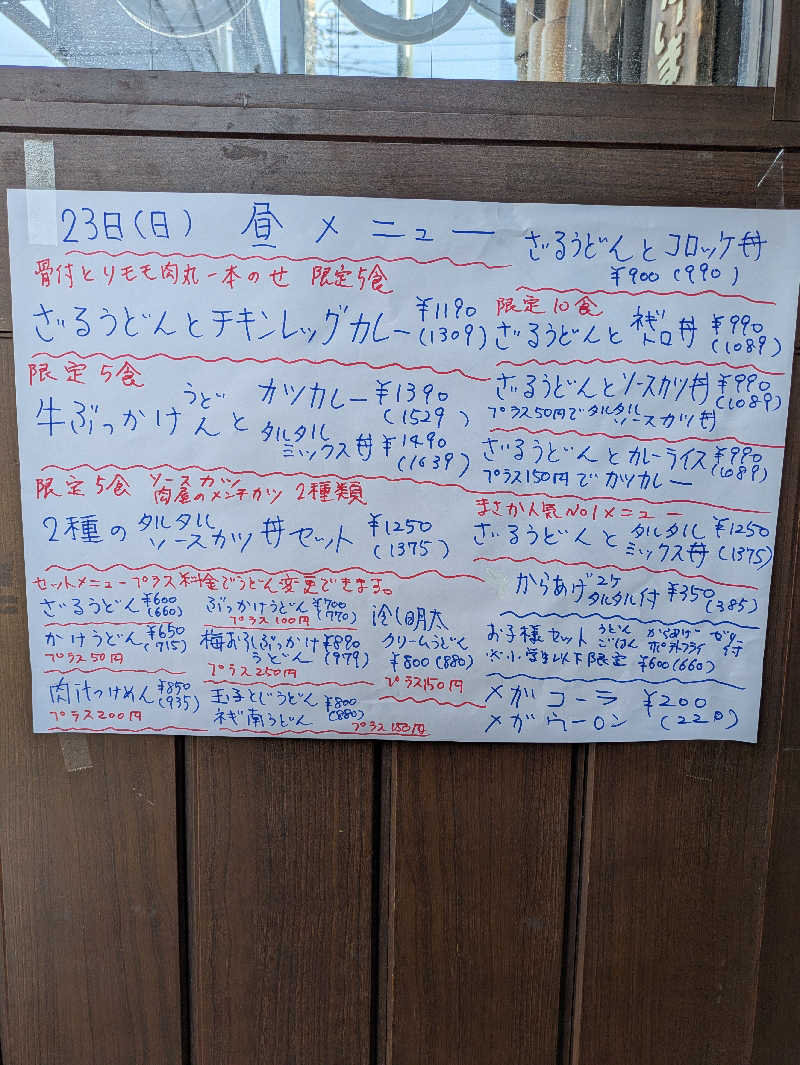 23日(日) 昼メニュー
骨付とりモモ肉丸一本のせ 限定5食
ざるうどんとチキンレッグカレー ¥1190 (1309)
限定5食
牛ぶっかけうどんと カツカレー ¥1390 (1529)
タルタルミックス丼 ¥1490 (1639)
限定5食 ソースカツ 肉屋のメンチカツ 2種類
2種のタルタルソースカツ丼セット ¥1250 (1375)
セットメニュープラス料金でうどん変更できます。
ざるうどん ¥600 (660)
かけうどん ¥650 (715)
プラス50円
肉汁つけめん ¥850 (935)
プラス200円
ぶっかけうどん ¥700 (770)
プラス100円
梅おろしぶっかけうどん ¥890 (979)
プラス250円
玉子とじうどん
ネギ南うどん ¥800 (880)
プラス150円
冷し明太
クリームうどん
¥800 (880)
プラス150円
ざるうどんとコロッケ丼
¥900 (990)
限定10食
ざるうどんとネギトロ丼 ¥990 (1089)
ざるうどんとソースカツ丼 ¥990 (1089)
プラス50円でタルタルソースカツ丼
ざるうどんとカレーライス ¥990 (1089)
プラス150円でカツカレー
まさか人気No1メニュー
ざるうどんとタルタルミックス丼 ¥1250 (1375)
からあげ2ケ タルタル付 ¥350 (385)
お子様セット うどん ごはん からあげ ポテトフライ ゼリー付
※小学生以下限定 ¥600 (660)
メガコーラ ¥200
メガウーロン (220)